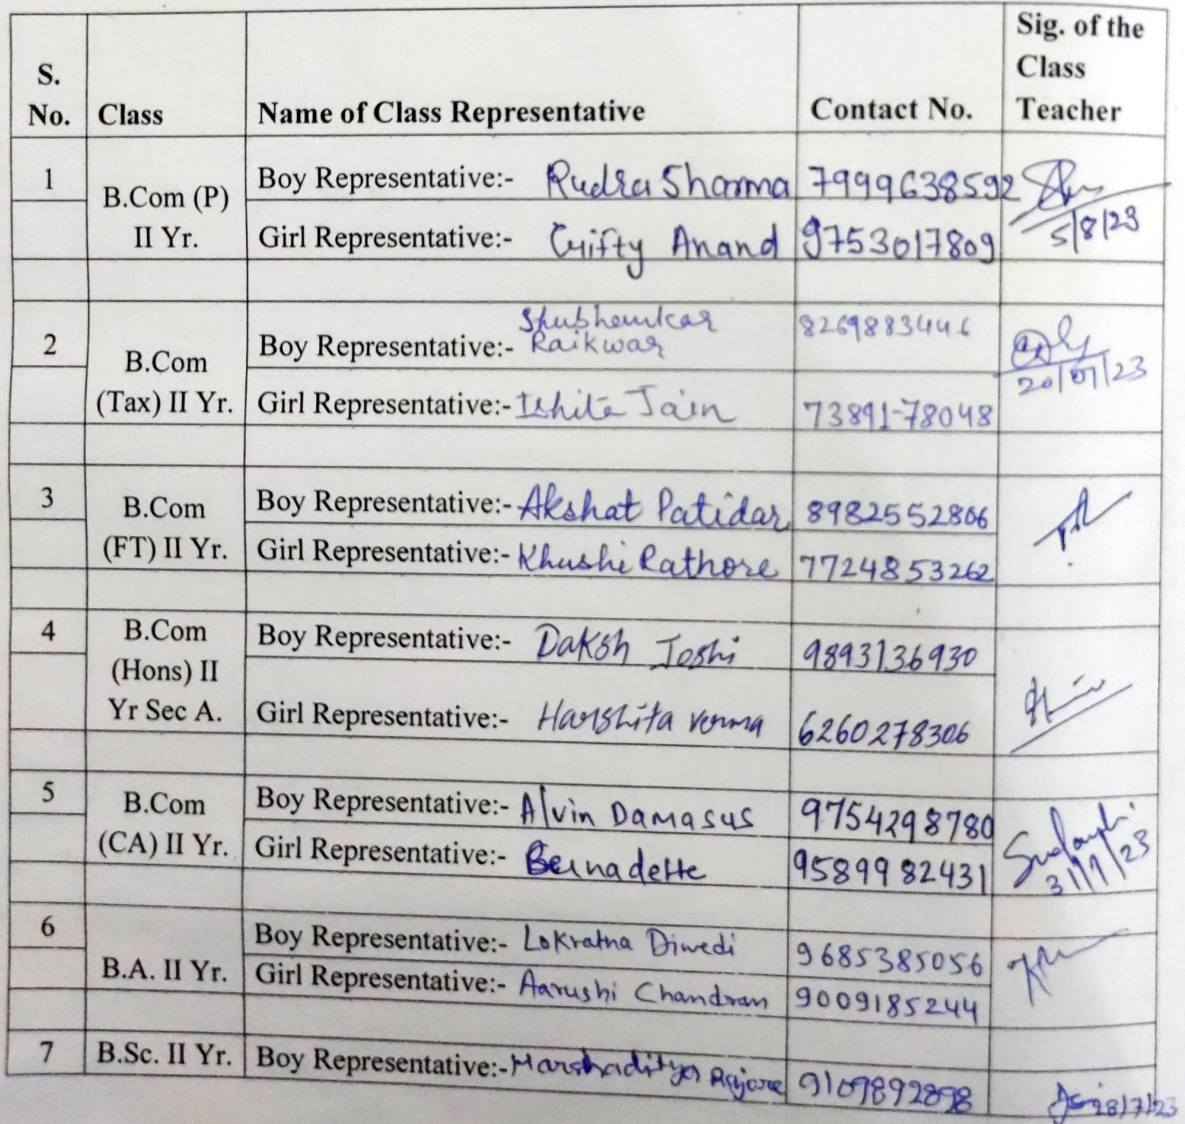 S. No. Class Name of Class Representative Contact No. Sig. of the Class Teacher
1 B.Com (P) II Yr. Boy Representative:- Rudra Sharma 7999638592
Girl Representative:- Gifty Anand 9753017809 5/8/23
2 B.Com (Tax) II Yr. Boy Representative:- Shubhamkar Raikwar 8269883446 20/07/23
Girl Representative:- Ishita Jain 73891-78048
3 B.Com (FT) II Yr. Boy Representative:- Akshat Patidar 8982552806
Girl Representative:- Khushi Rathore 7724853262
4 B.Com (Hons) II Yr Sec A. Boy Representative:- Daksh Joshi 9893136930
Girl Representative:- Harshita Verma 6260278306
5 B.Com (CA) II Yr. Boy Representative:- Alvin Damasus 9754298780
Girl Representative:- Bernadette 9589982431
6 B.A. II Yr. Boy Representative:- Lokratna Diwedi 9685385056
Girl Representative:- Aarushi Chandran 9009185244
7 B.Sc. II Yr. Boy Representative:- Harshaditya 9109892898 28/7/23